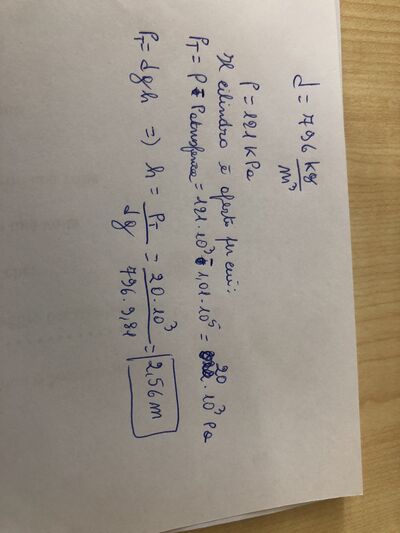 d = 796 kg/m³
P = 121 KPa
Il cilindro è aperto per cui:
P_T = P - Patmosferica = 121·10³ - 1,01·10⁵ = 20·10³ Pa
P_T = dgh => h = P_T/dg = 20·10³/796·9,81 = 2,56 m